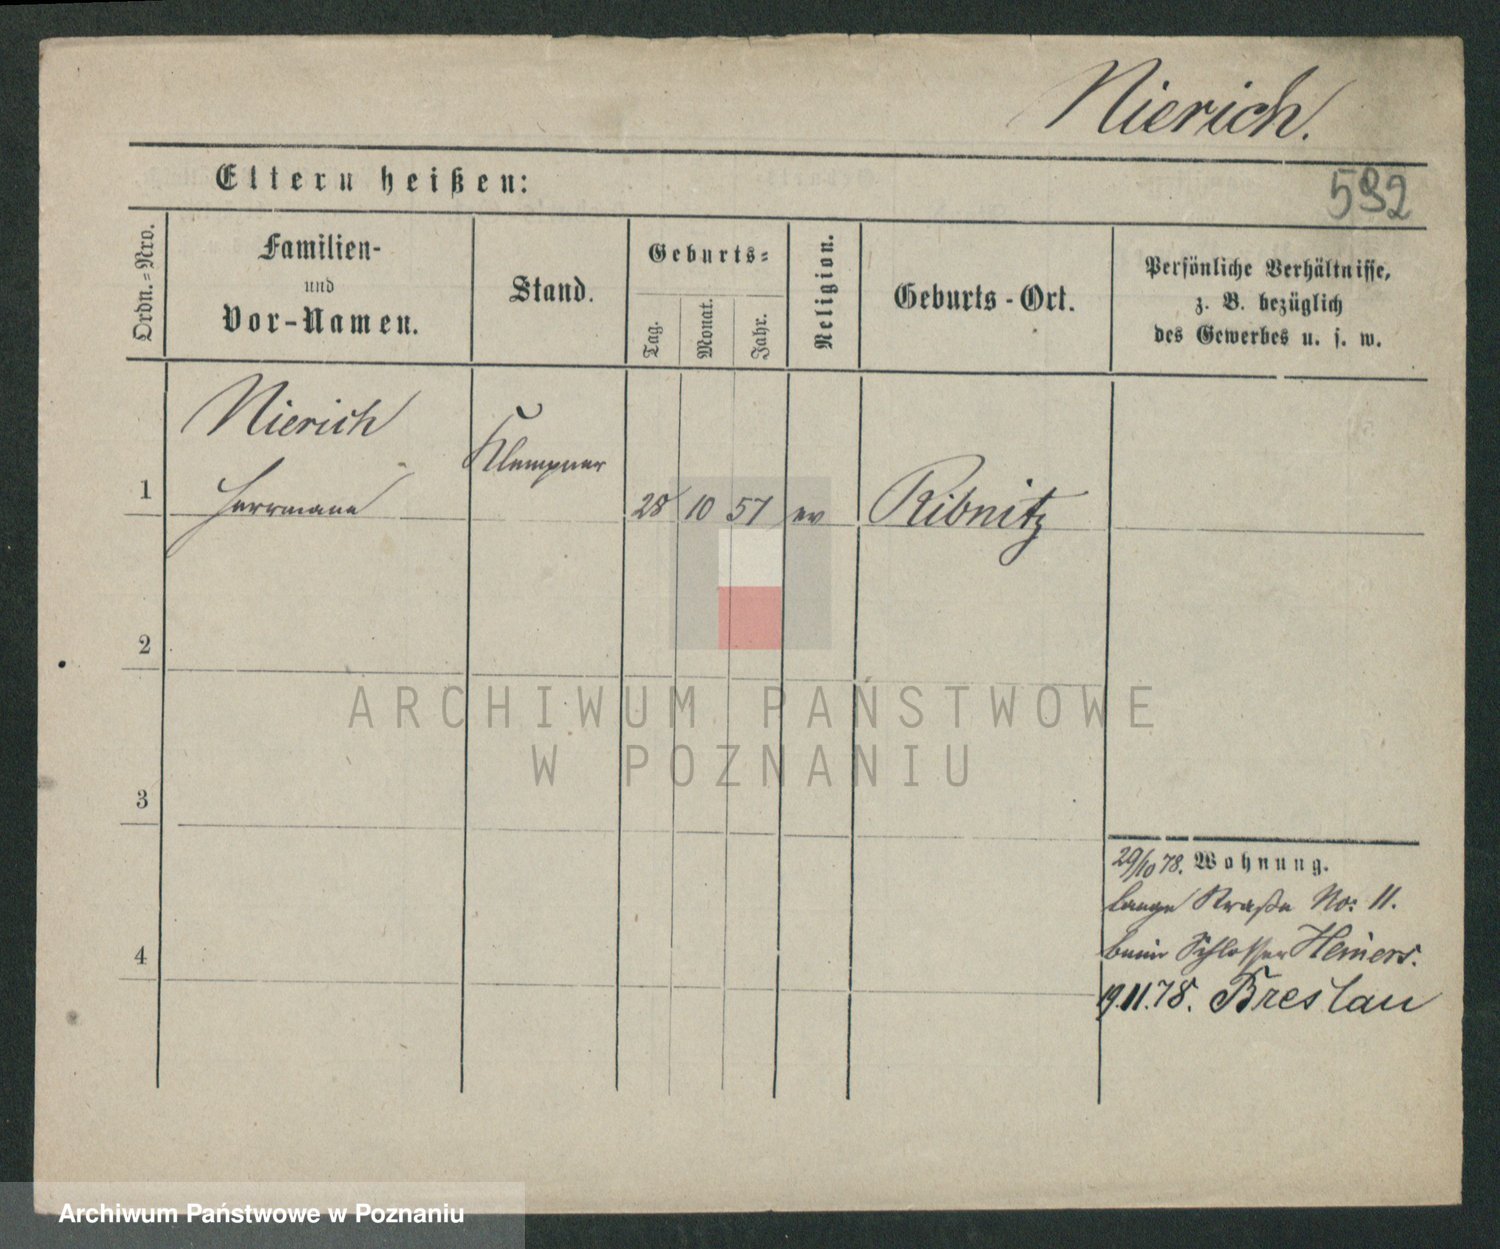 Nierich.
592
Eltern heißen:
Ordn.=Nro.
Familien-
und
Vor-Namen.
Stand.
Geburts=
Tag.
Monat.
Jahr.
Religion.
Geburts-Ort.
Persönliche Verhältnisse,
z. B. bezüglich
des Gewerbes u. s. w.
1
Nierich
Herrmann
Klempner
28 10 57 ev
Ribnitz
2
3
4
29/10 78. Wohnung.
Lange Straße No: 11.
beim Schlosser Heiners.
19.11.78. Breslau
ARCHIWUM PAŃSTWOWE
W POZNANIU
Archiwum Państwowe w Poznaniu